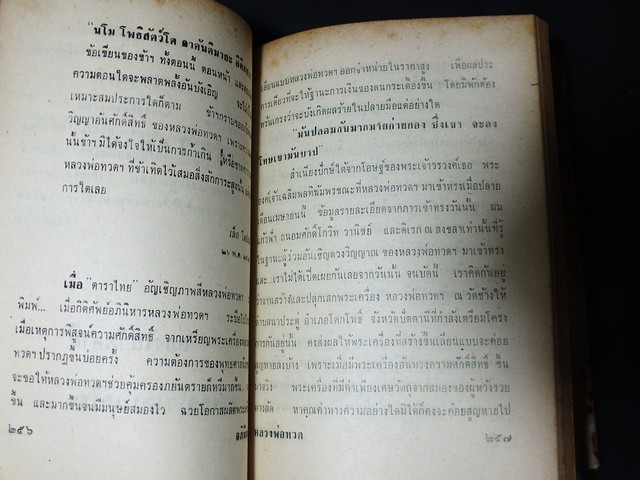 "นโม โพธิสัตว์โต อาคันติมายะ อิติ
ข้อเขียนของข้าฯ ทั้งตอนนี้ ตอนหน้า และ
ความตอนใดจะพลาดพลั้งอันบังเอิญ
เหมาะสมประการใดก็ตาม ข้าฯกราบขอ
วิญญาณอันศักดิ์สิทธิ์ ของหลวงพ่อทวดฯ เพราะ
นั้นข้าฯ มิได้จงใจให้เป็นการก้ำเกิน หรือ
หลวงพ่อทวดฯ ที่ข้าเทิดไว้เสมอสิ่งสักการะสูง
การใดเลย
เมื่อ "ดาราไทย" อัญเชิญภาพสีหลวงพ่อทวดฯ
พิมพ์... เมื่อกิติศัพย์อภินิหารหลวงพ่อทวดฯ
เมื่อเหตุการพิสูจน์ความศักดิ์สิทธิ์ จากเหรียญพระเครื่อง
ทวดฯ ปรากฏขึ้นบ่อยครั้ง ความต้องการของพุทธศาสนิก
จะขอให้หลวงพ่อทวดฯช่วยคุ้มครองภยันตรายก็ทวีมากขึ้น
ขึ้น และมากขึ้นจนมีมนุษย์สมองไว ฉวยโอกาสผลิตพระ
๒๕๖
เลียนแบบหลวงพ่อทวดฯ ออกจำหน่ายในราคาสูง เพื่อผลประ
การเดียวที่จะให้ฐานะการเงินของตนกระเตื้องขึ้น โดยมิพักต้อง
หวั่นเกรงว่าจะบังเกิดผลร้ายในปลายมือแต่อย่างใด
"มันปลอมกันมากมายก่ายกอง ซึ่งเขา จะลง
โทษเขามันบาป"
สำเนียงปักษ์ใต้จากโอษฐ์ของพระเจ้าวรวงค์เธอ พระ
องค์เจ้าเฉลิมพลฑิฆัมพรขณะที่หลวงพ่อทวดฯ มาเข้าทรงเมื่อปลาย
เดือนเมษายนนี้ ข้อมูลรายละเอียดจากการเข้าทรงวันนั้น ผม
แก้วฟ้า ถนอมศักดิ์โกวิท วานิชย์ และดิเรก ณ สงขลาเท่านั้นที่รู้
ในฐานะผู้ร่วมอันเชิญดวงวิญญาณ ของหลวงพ่อทวดฯ มาเข้าทรง
และเราไม่ได้เปิดเผยกันเลยจากวันนั้น จนบัดนี้ เราคิดกันอยู่
งานสร้างและปลุกเสกพระเครื่อง หลวงพ่อทวดฯ ณ วัดช้างให้
ตำบลนาประดู่ อำเภอโคกโพธิ์ จังหวัดปัตตานีที่กำลังเตรียมโครง
การกันอยู่นั้น คงส่งผลให้พระเครื่องที่สร้างขึ้นเลียนแบบจะค่อย
สูญหายลงบ้าง เพราะเมื่อมีพระเครื่องอันทรงความศักดิ์สิทธิ์ ขึ้น
มาจริง พระเครื่องที่มีกำเพียงเศษวัตถุจากสมองของผู้หวังรวย
ทางลัด หาคุณค่าทางความอย่างใดมิได้ก็คงจะค่อยสูญหายไป
อภินิหารหลวงพ่อทวด
๒๕๗